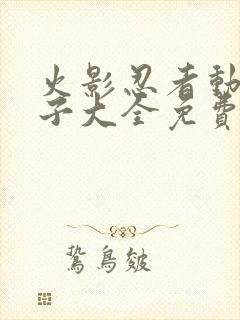 火影忍者動
子大全免費
鷙鳥皴